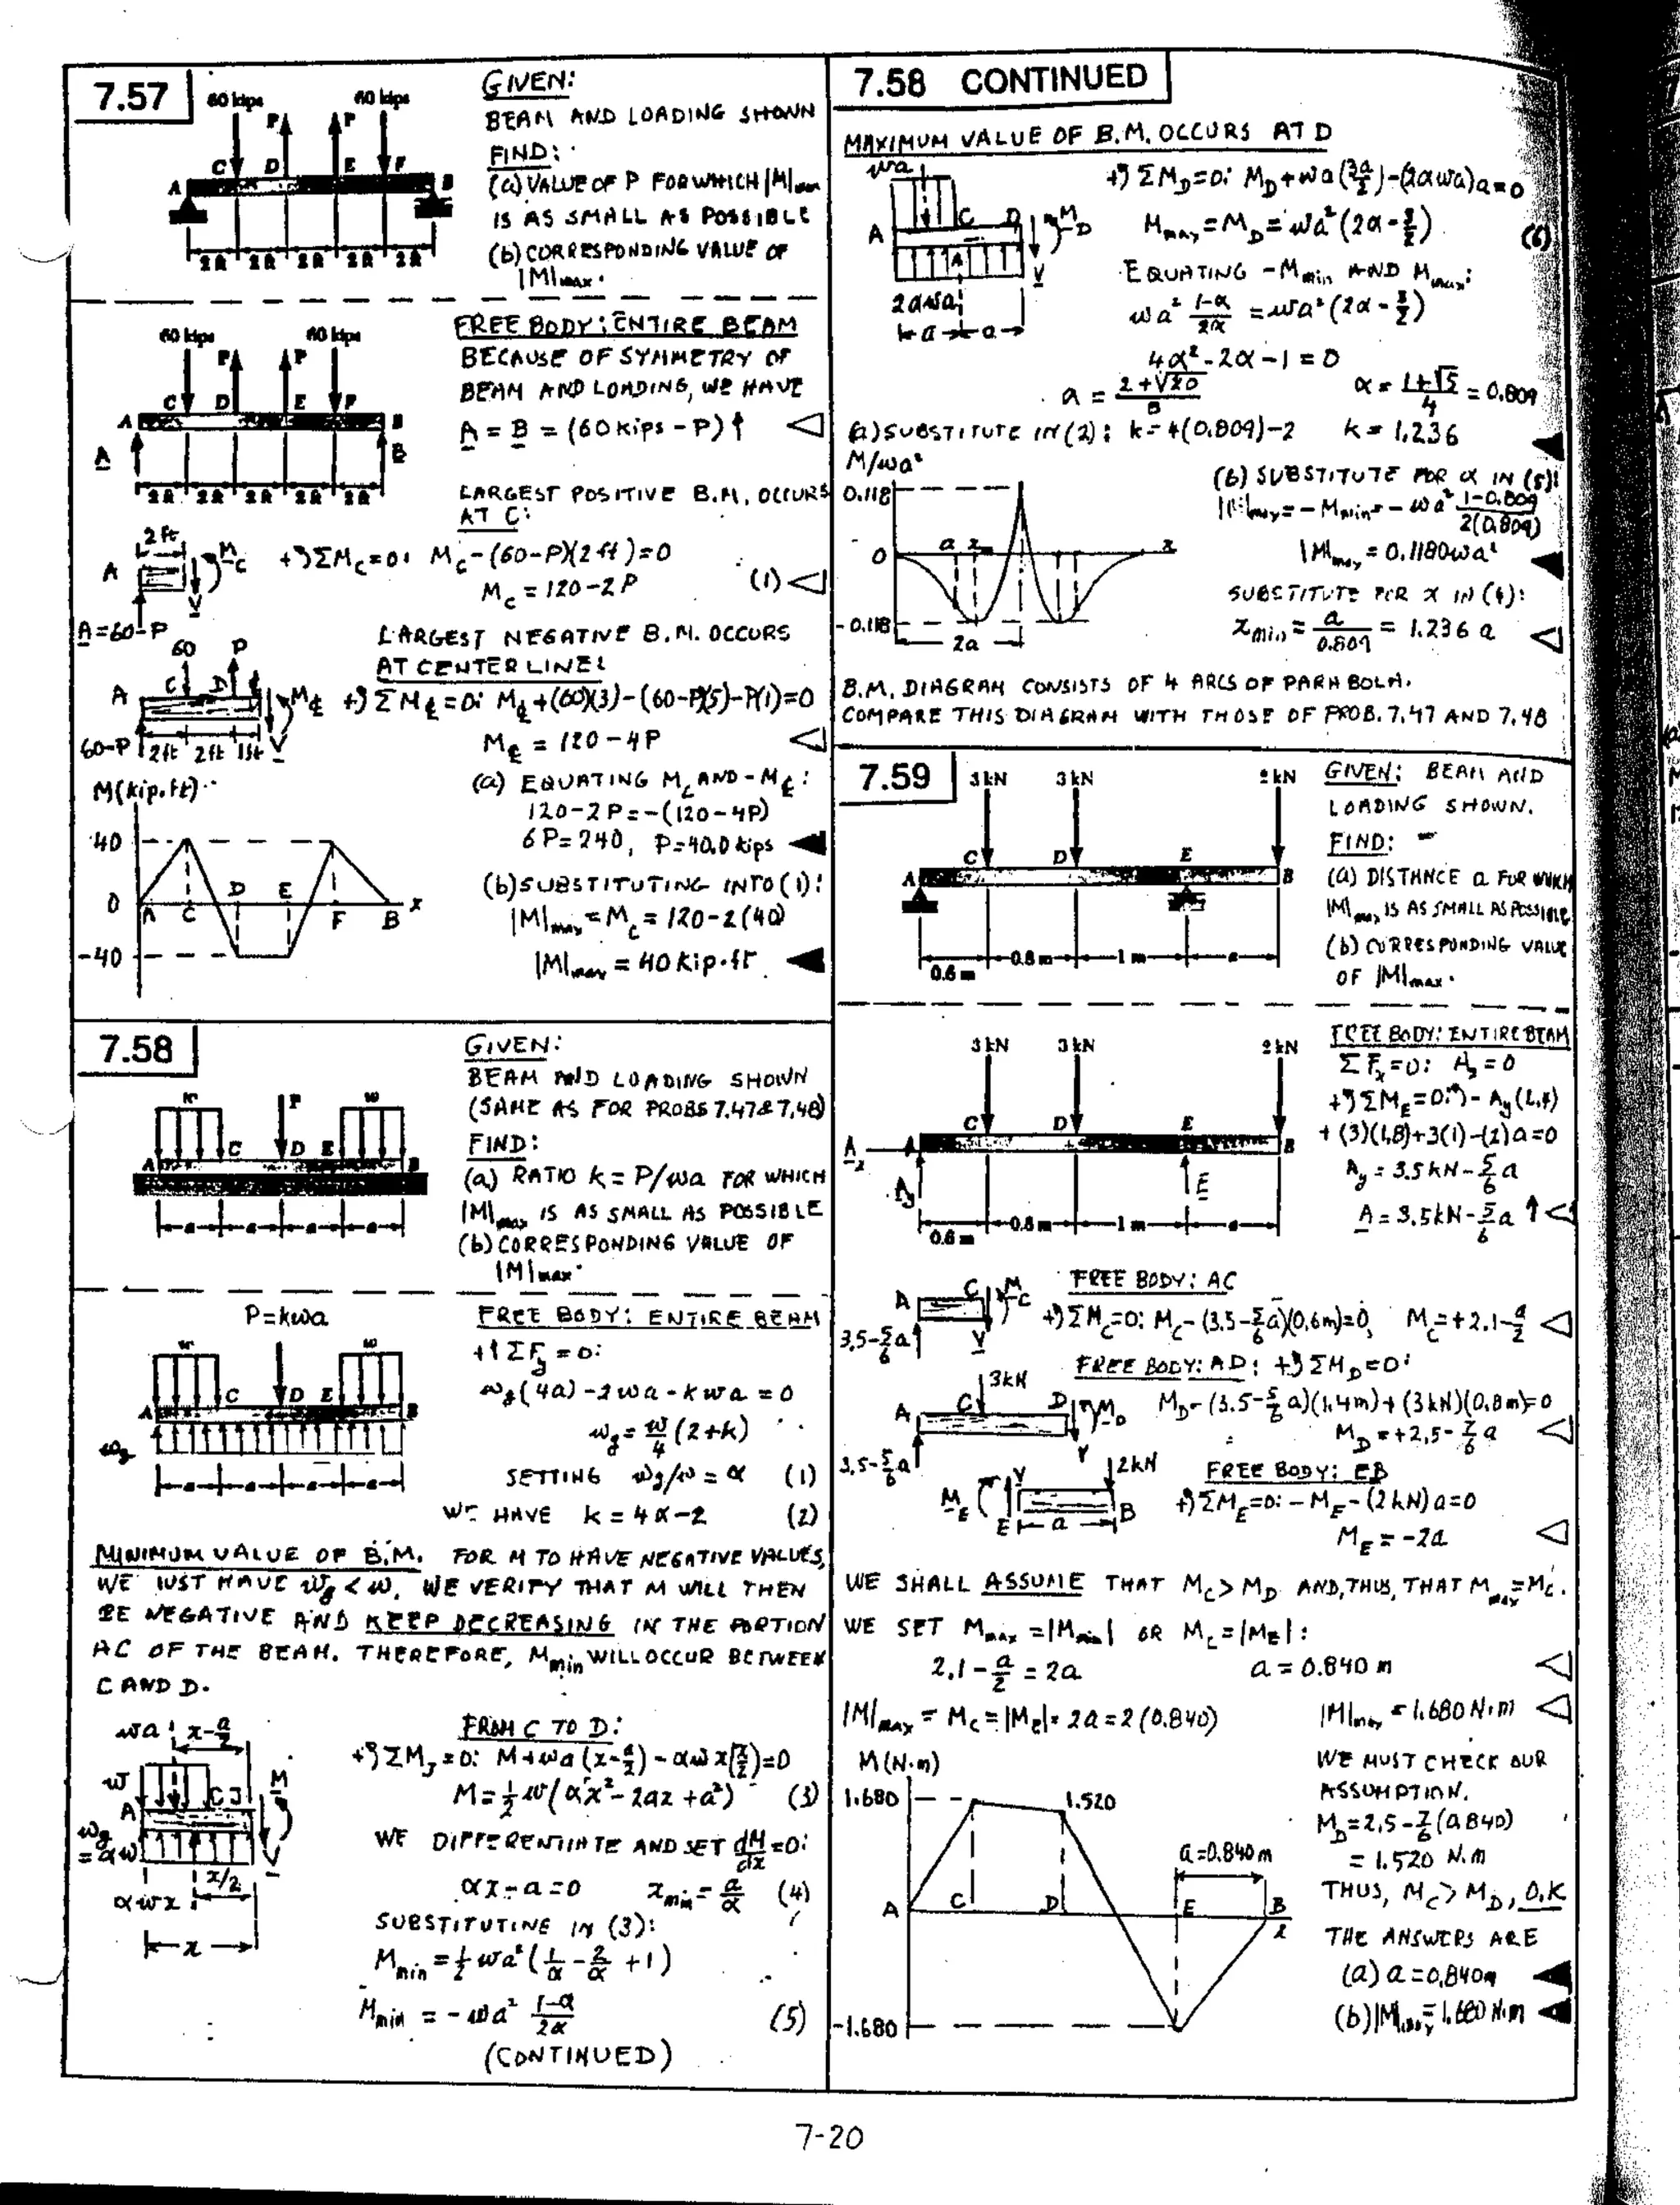 7.57
60 kips 60 kips
P P
C D E F
A B
2 ft 2 ft 2 ft 2 ft 2 ft
GIVEN:
BEAM AND LOADING SHOWN
FIND:
(a) VALUE OF P FOR WHICH |M|max
IS AS SMALL AS POSSIBLE
(b) CORRESPONDING VALUE OF
|M|max.
60 kips 60 kips
P P
C D E F
A B
A B
2 ft 2 ft 2 ft 2 ft 2 ft
FREE BODY: ENTIRE BEAM
BECAUSE OF SYMMETRY OF
BEAM AND LOADING, WE HAVE
A = B = (60 kips - P)↑ ◁
LARGEST POSITIVE B.M. OCCURS
AT C:
2 ft
A Mc
V
A=60-P
+↺ΣMc=0: Mc-(60-P)(2 ft)=0
Mc = 120-2P (1) ◁
LARGEST NEGATIVE B.M. OCCURS
AT CENTER LINE:
60 P
A C D M℄
60-P 2ft 2ft 1ft V
+↺ΣM℄=0: M℄+(60)(3)-(60-P)(5)-P(1)=0
M℄ = 120-4P ◁
(a) EQUATING Mc AND -M℄:
120-2P=-(120-4P)
6P=240, P=40.0 kips ◀
(b) SUBSTITUTING INTO (1):
|M|max = Mc = 120-2(40)
|M|max = 40 kip·ft ◀
M(kip.ft)
40
0 A C D E F B x
-40
7.58
w P w
A C D E B
a a a a
GIVEN:
BEAM AND LOADING SHOWN
(SAME AS FOR PROBS 7.47 & 7.48)
FIND:
(a) RATIO k = P/wa FOR WHICH
|M|max IS AS SMALL AS POSSIBLE
(b) CORRESPONDING VALUE OF
|M|max.
P=kwa
w w
A C D E B
wg
a a a a
FREE BODY: ENTIRE BEAM
+↑ΣFy = 0:
wg(4a)-2wa-kwa = 0
wg = w/4 (2+k)
SETTING wg/w = α (1)
WE HAVE k = 4α-2 (2)
MINIMUM VALUE OF B.M. FOR M TO HAVE NEGATIVE VALUES,
WE MUST HAVE wg < w. WE VERIFY THAT M WILL THEN
BE NEGATIVE AND KEEP DECREASING IN THE PORTION
AC OF THE BEAM. THEREFORE, Mmin WILL OCCUR BETWEEN
C AND D.
wa x-a/2
w C J M
A
wg
=αw V
αwx x/2
x
FROM C TO D:
+↺ΣMJ=0: M+wa(x-a/2)-αwx(x/2)=0
M=½w(αx²-2ax+a²) (3)
WE DIFFERENTIATE AND SET dM/dx=0:
αx-a=0 xmin=a/α (4)
SUBSTITUTING IN (3):
Mmin=½wa²(1/α-2/α+1)
Mmin = -wa² (1-α)/2α (5)
(CONTINUED)
7.58 CONTINUED
MAXIMUM VALUE OF B.M. OCCURS AT D
wa
A C D MD
V
2αwa
a a
+↺ΣMD=0: MD+wa(3a/2)-(2αwa)a=0
Mmax=MD=wa²(2α-3/2) (6)
EQUATING -Mmin AND Mmax:
wa² (1-α)/2α = wa²(2α-3/2)
4α²-2α-1=0
α = (2+√20)/8 α = (1+√5)/4 = 0.809
(a) SUBSTITUTE IN (2): k=4(0.809)-2 k=1.236 ◀
M/wa²
0.118
0 a x
-0.118
2a
(b) SUBSTITUTE FOR α IN (5):
|M|max=-Mmin=-wa² (1-0.809)/2(0.809)
|M|max = 0.1180wa² ◀
SUBSTITUTE FOR α IN (4):
xmin = a/0.809 = 1.236 a ◁
B.M. DIAGRAM CONSISTS OF 4 ARCS OF PARABOLA.
COMPARE THIS DIAGRAM WITH THOSE OF PROB. 7.47 AND 7.48
7.59
3 kN 3 kN 2 kN
C D E
A B
0.6 m 0.8 m 1 m a
GIVEN: BEAM AND
LOADING SHOWN.
FIND:
(a) DISTANCE a FOR WHICH
|M|max IS AS SMALL AS POSSIBLE
(b) CORRESPONDING VALUE
OF |M|max.
3 kN 3 kN 2 kN
C D E
Ax A B
Ay E
0.6 m 0.8 m 1 m a
FREE BODY: ENTIRE BEAM
ΣFx=0: Ax=0
+↺ΣME=0: -Ay(2.4)
+(3)(1.8)+3(1)-(2)a=0
Ay = 3.5 kN-5/6 a
A = 3.5 kN-5/6 a ↑ ◁
FREE BODY: AC
A C Mc
3.5-5/6 a V
+↺ΣMc=0: Mc-(3.5-5/6 a)(0.6m)=0, Mc=+2.1-a/2 ◁
FREE BODY: AD: +↺ΣMD=0:
3kN
A C D MD
3.5-5/6 a V
MD-(3.5-5/6 a)(1.4m)+(3kN)(0.8m)=0
MD=+2.5-7/6 a ◁
FREE BODY: EB
V 2kN
ME E a B
+↺ΣME=0: -ME-(2kN)a=0
ME = -2a ◁
WE SHALL ASSUME THAT Mc> MD AND, THUS, THAT Mmax=Mc.
WE SET Mmax=|Mmin| OR Mc=|ME|:
2.1-a/2 = 2a a=0.840 m ◁
|M|max = Mc=|ME|=2a=2(0.840) |M|max=1.680 N·m ◁
M(N·m)
1.680 1.520
a=0.840m
A C D E B x
-1.680
WE MUST CHECK OUR
ASSUMPTION.
MD=2.5-7/6(0.840)
= 1.520 N.m
THUS, Mc> MD, O.K
THE ANSWERS ARE
(a) a=0.840m ◀
(b)|M|max=1.680 N·m ◀
7-20